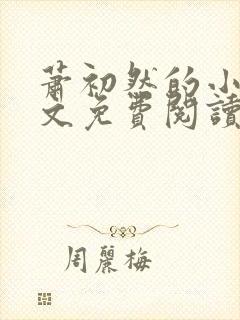 蕭初然的小
文免費閱讀
周麗梅